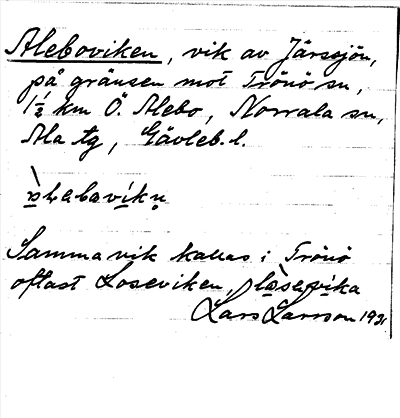 Aleboviken, vik av Järssjön,
på gränsen mot Trönö sn,
1½ km Ö. Alebo, Norrala sn,
Ala tg, Gävleb. l.
Samma vik kallas i Trönö
oftast Loseviken,
Lars Larsson 1931